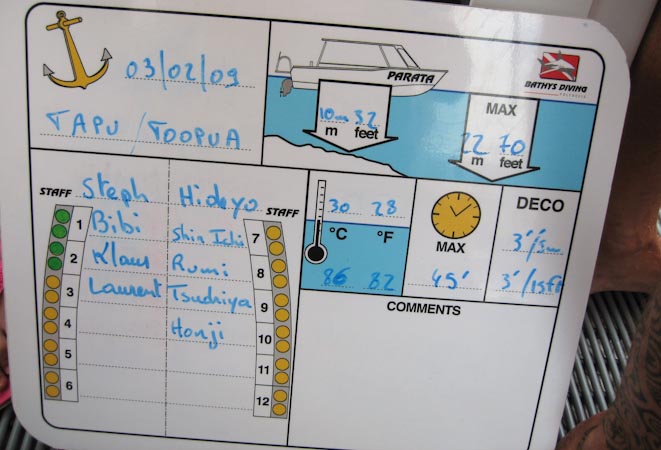 03/02/09
TAPU / TOOPUA
PARATA
BATHYS DIVING
10m 32
m feet
MAX
22 70
m feet
STAFF Steph Hideyo STAFF
1 Bibi Shin Ichi 7
2 Klaus Rumi 8
3 Laurent Tsudriya 9
4 Honji 10
5 11
6 12
30 28
°C °F
86 82
MAX
45'
DECO
3'/5m
3'/15ft
COMMENTS